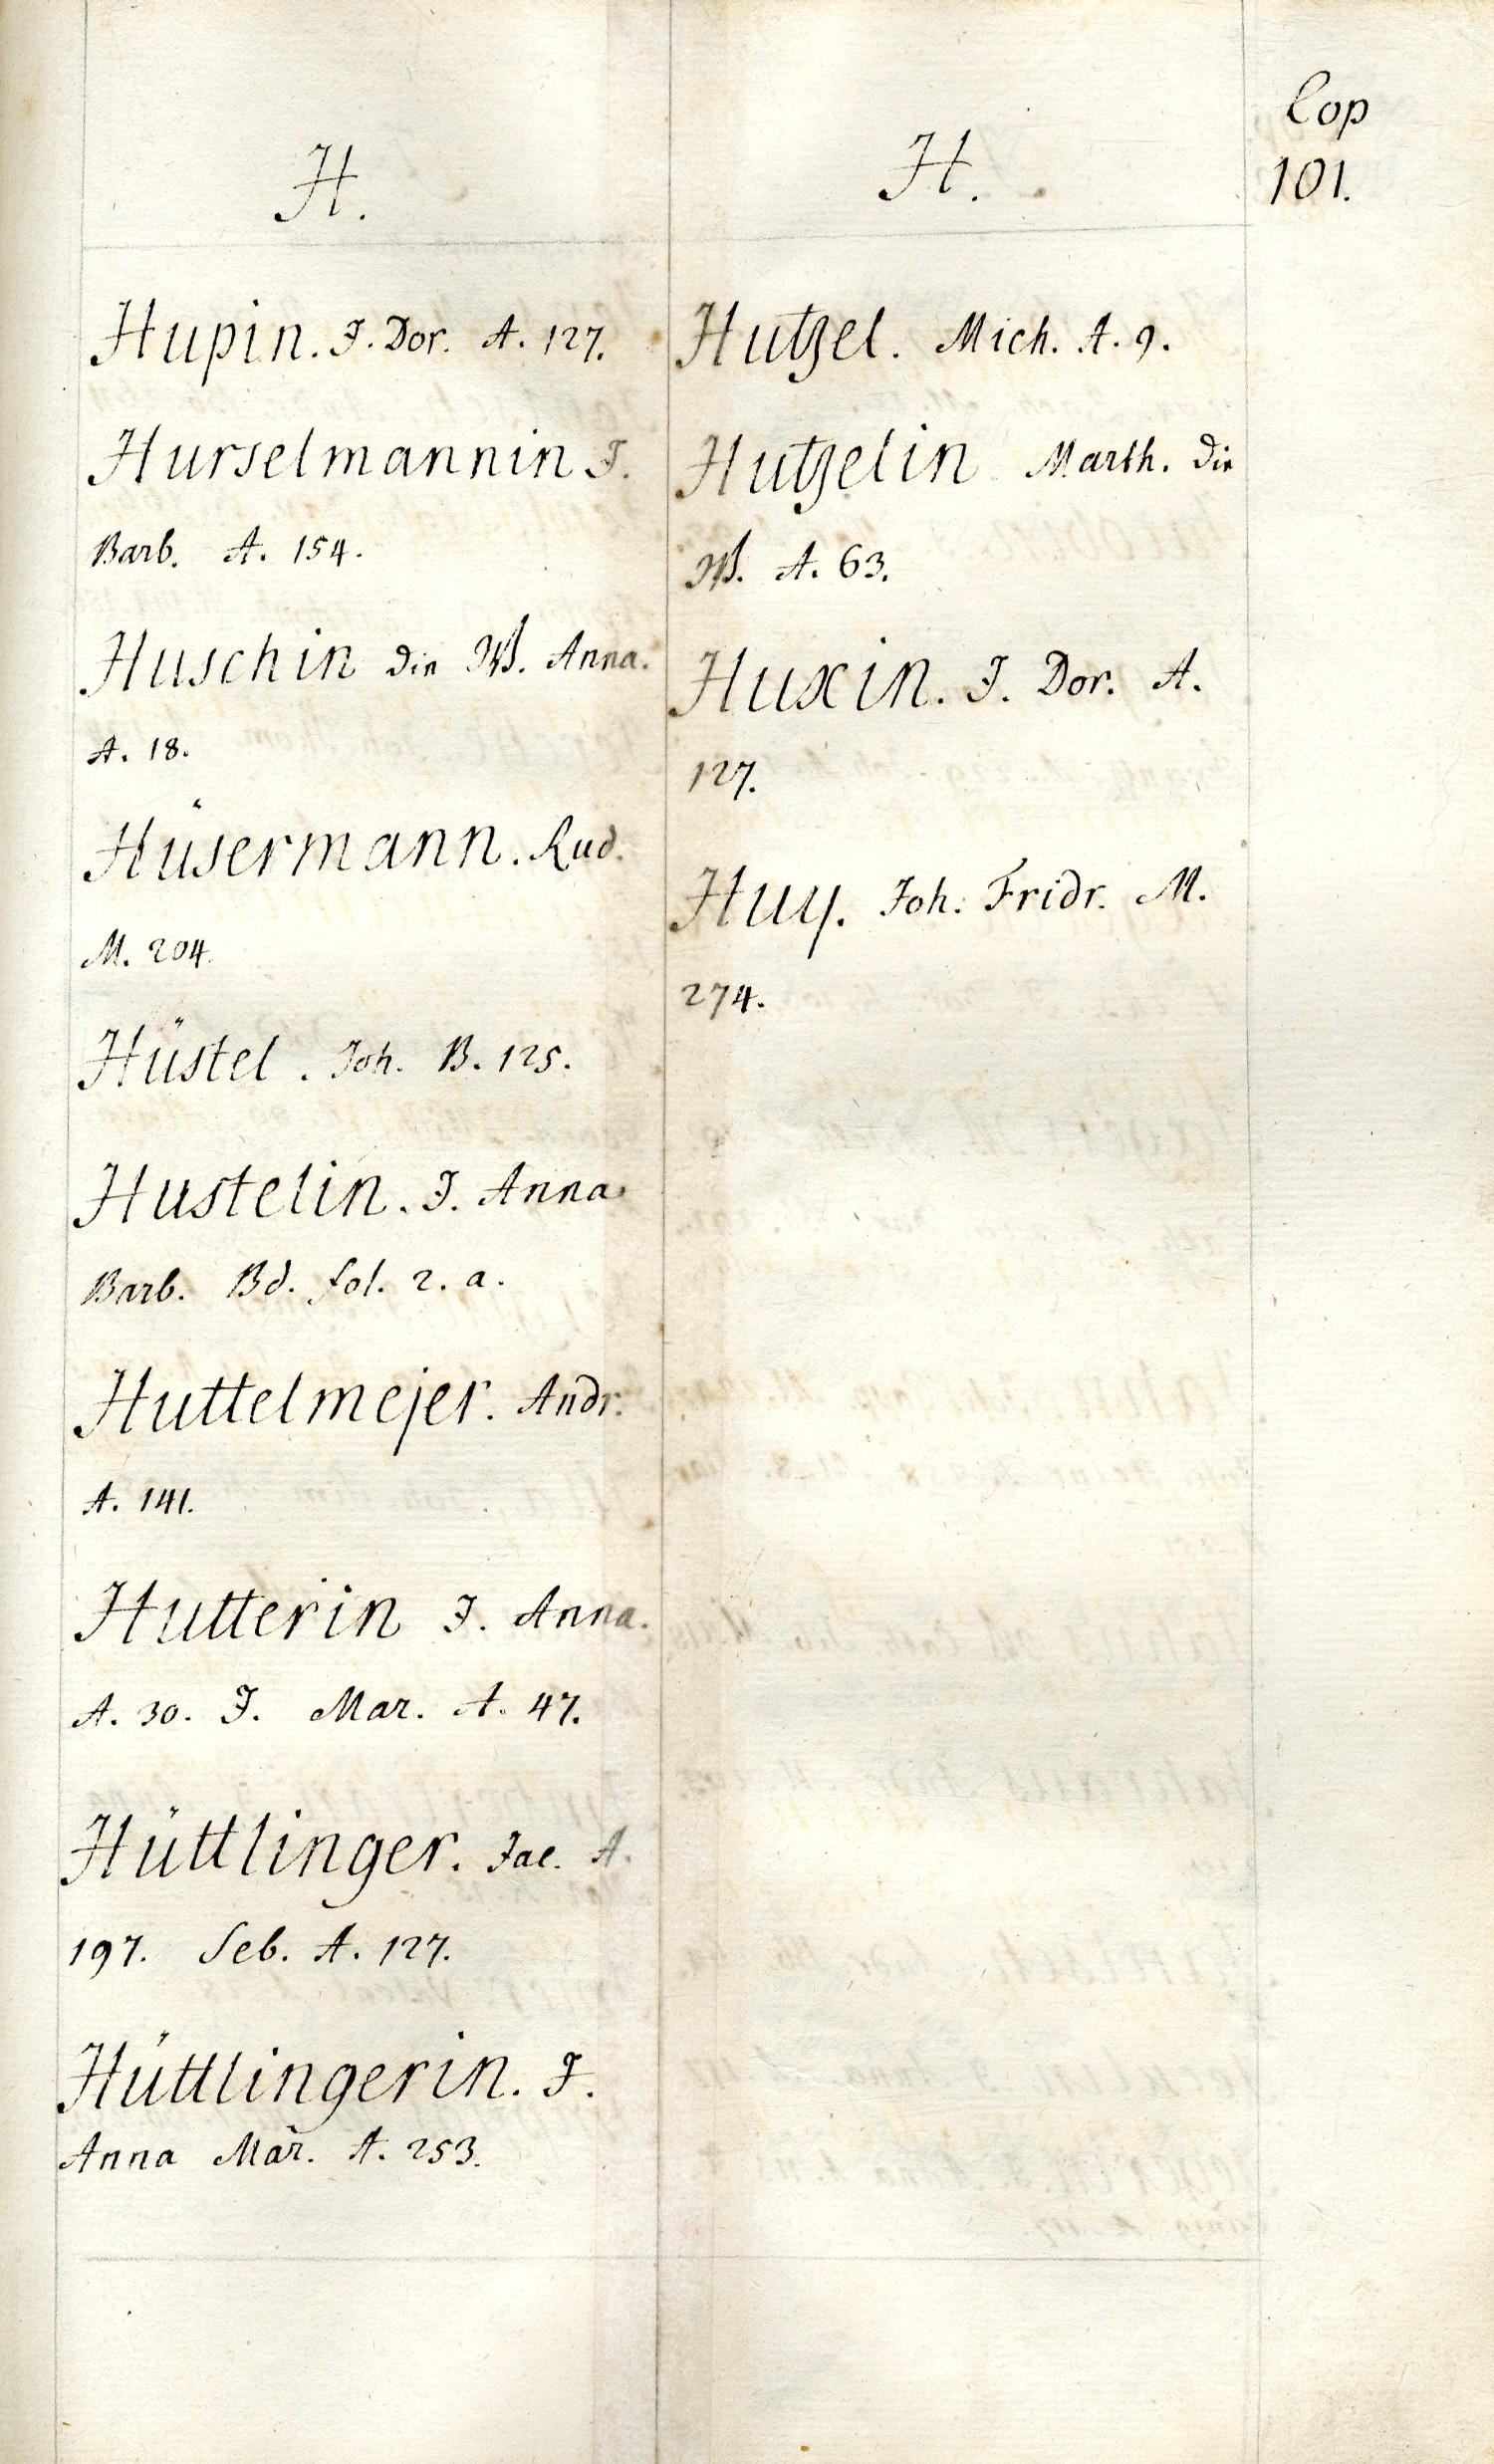 Cop
101.
H.
Hupin. J. Dor. A. 127.
Hurselmannin J.
Barb. A. 154.
Huschin die W. Anna.
A. 18.
Hüsermann. Rud.
M. 204.
Hüstel. Joh. B. 125.
Hustelin. J. Anna
Barb. Bd. fol. 2. a.
Huttelmejer. Andr.
A. 141.
Hutterin J. Anna.
A. 30. J. Mar. A. 47.
Hüttlinger. Jac. A.
197. Seb. A. 127.
Hüttlingerin. J.
Anna Mar. A. 253.
H.
Hutzel. Mich. A. 9.
Hutzelin Marth. die
W. A. 63.
Huxin. J. Dor. A.
127.
Huy. Joh. Fridr. M.
274.